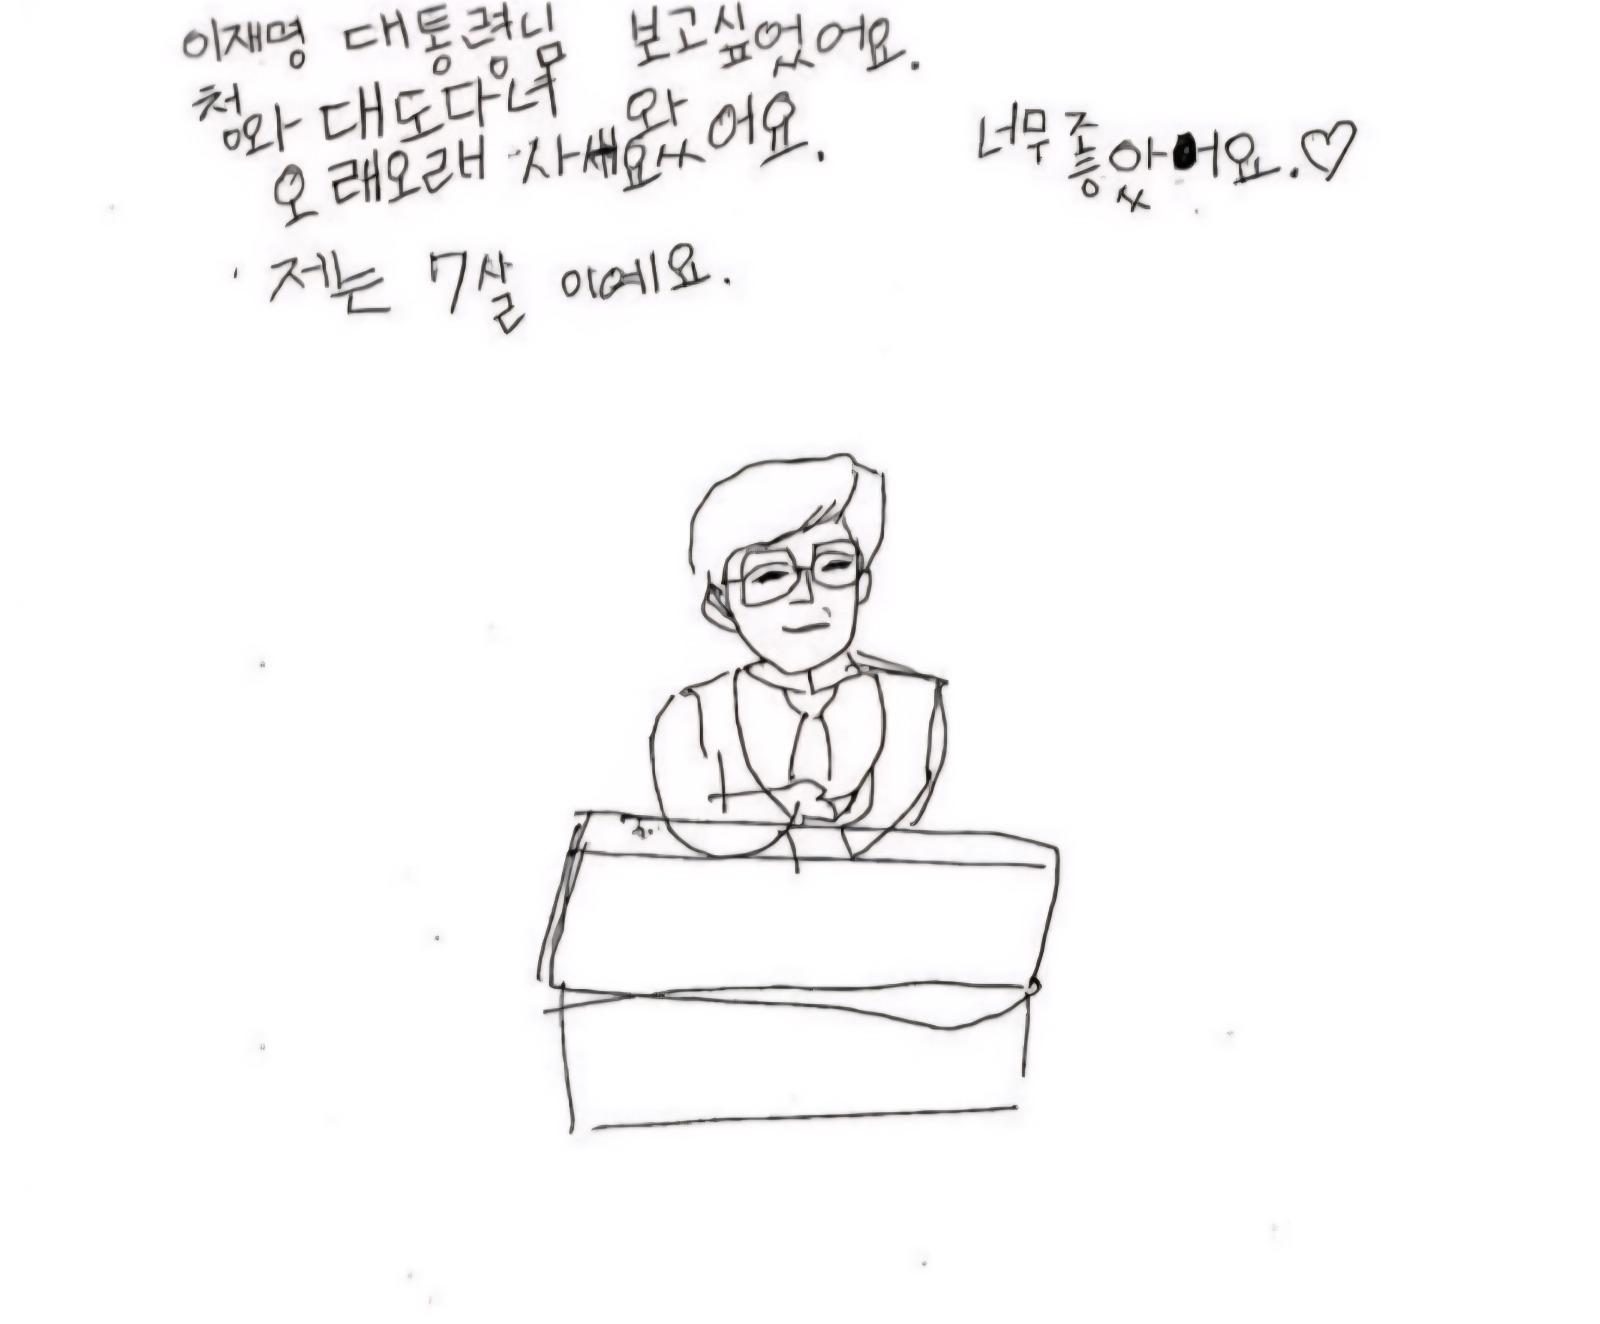 이재명 대통령님 보고싶었어요.
청와대도다녀왔어요.
너무좋았어요.♡
오래오래 사세요
제는 7살 이예요.